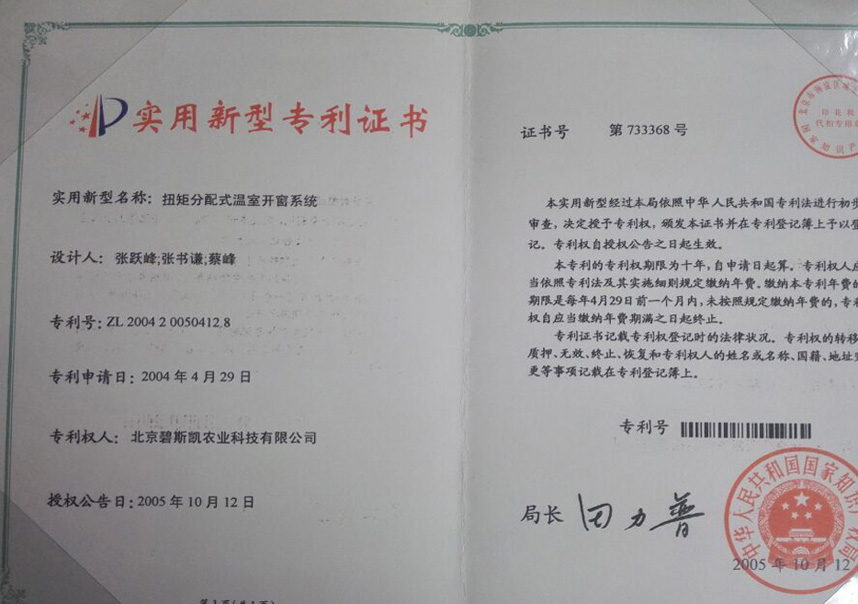 实用新型专利证书
实用新型名称：扭矩分配式温室开窗系统
设计人：张跃峰;张书谦;蔡峰
专利号：ZL 2004 2 0050412.8
专利申请日：2004 年 4 月 29 日
专利权人：北京碧斯凯农业科技有限公司
授权公告日：2005 年 10 月 12 日
证书号 第 733368 号
本实用新型经过本局依照中华人民共和国专利法进行初步
审查，决定授予专利权，颁发本证书并在专利登记簿上予以登
记。专利权自授权公告之日起生效。
本专利的专利权期限为十年，自申请日起算。专利权人应
当依照专利法及其实施细则规定缴纳年费。缴纳本专利年费的
期限是每年4月29日前一个月内，未按照规定缴纳年费的，专利
权自应当缴纳年费期满之日起终止。
专利证书记载专利权登记时的法律状况。专利权的转移
质押、无效、终止、恢复和专利权人的姓名或名称、国籍、地址变
更等事项记载在专利登记簿上。
专利号
局长 田力普
中华人民共和国国家知识产权局
2005 年 10 月 12